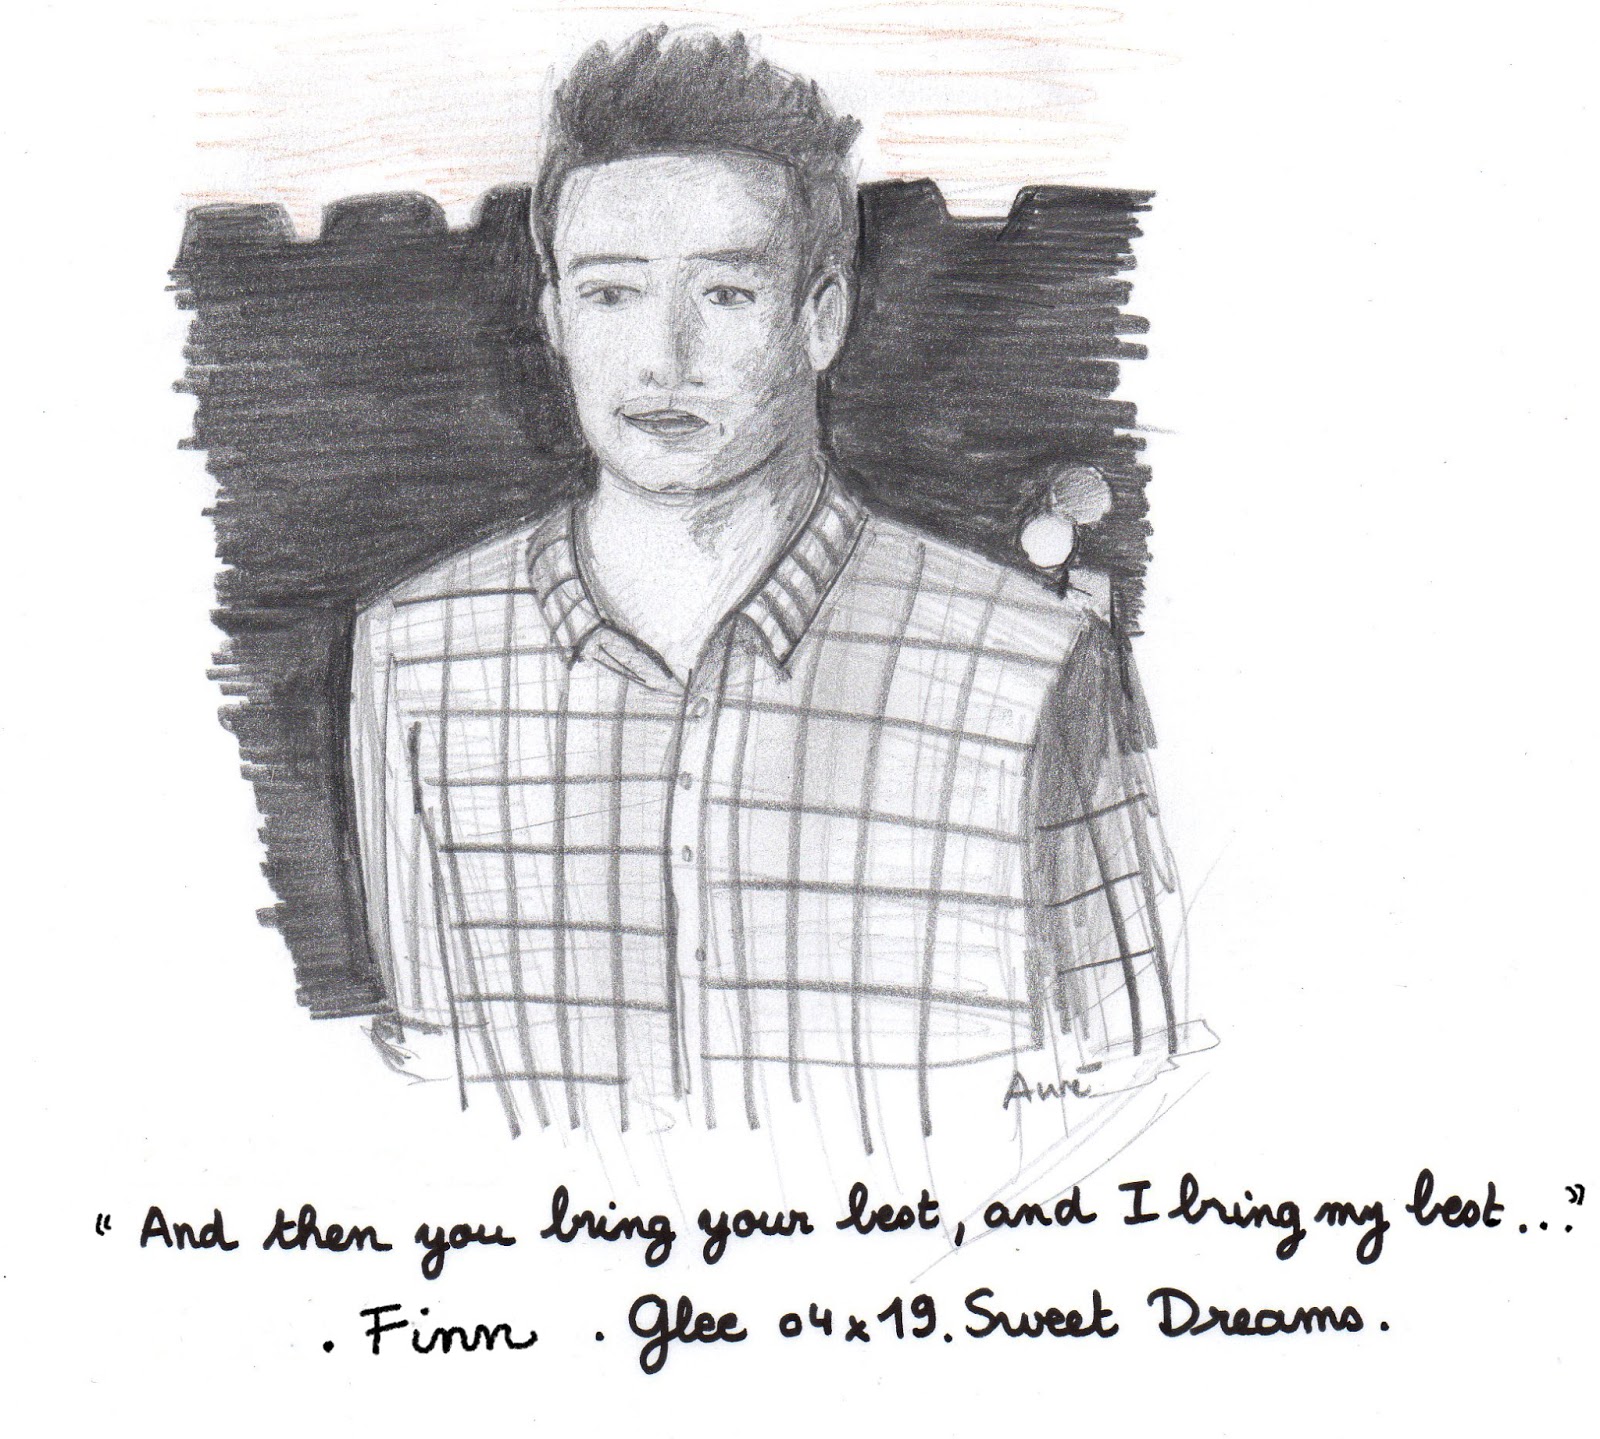 “And then you bring your best, and I bring my best...”
. Finn . Glee 04x19. Sweet Dreams.